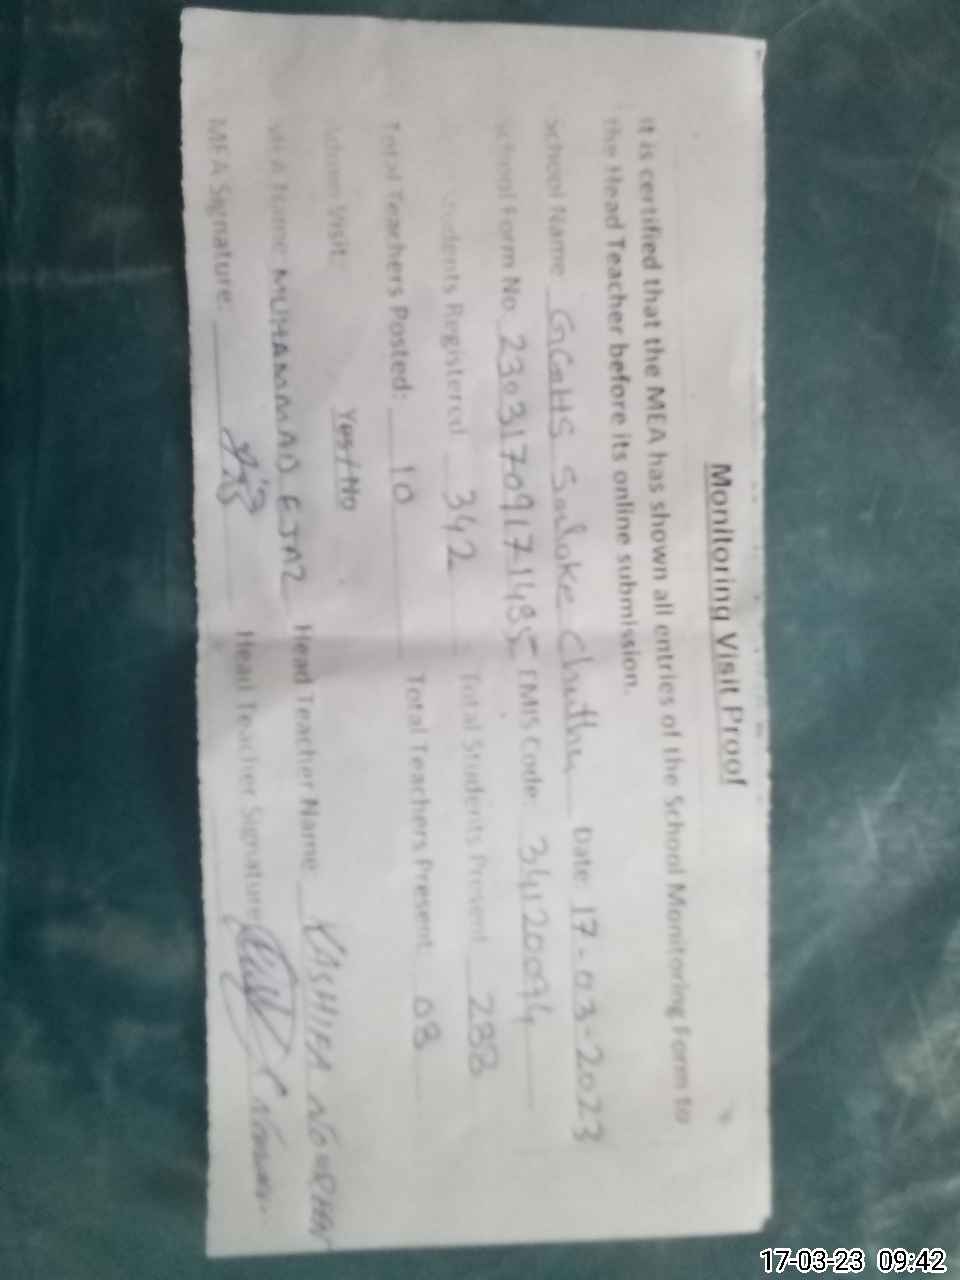 Monitoring Visit Proof
It is certified that the MEA has shown all entries of the School Monitoring Form to
the Head Teacher before its online submission.
School Name GGHS Saloke Chatha Date: 17-03-2023
School Form No 23031709171495 EMIS Code: 34120094
Students Registered 342 Total Students Present 288
Total Teachers Posted: 10 Total Teachers Present 08
Admin Visit: Yes/No
MEA Name: MUHAMMAD EJAZ Head Teacher Name KASHIFA NOREEN
MEA Signature: Head Teacher Signature
17-03-23 09:42